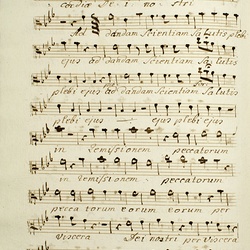 cordiæ Dei nostri
Ad dandam Scientiam Salutis plebi
ejus ad dandam Scientiam Salutis
plebi ejus ad dandam Scientiam Salutis
plebi ejus — ejus plebi ejus
in remissionem peccatorum
in remissionem peccatorum
peccatorum eorum eorum per
viscera Dei nostri per viscera